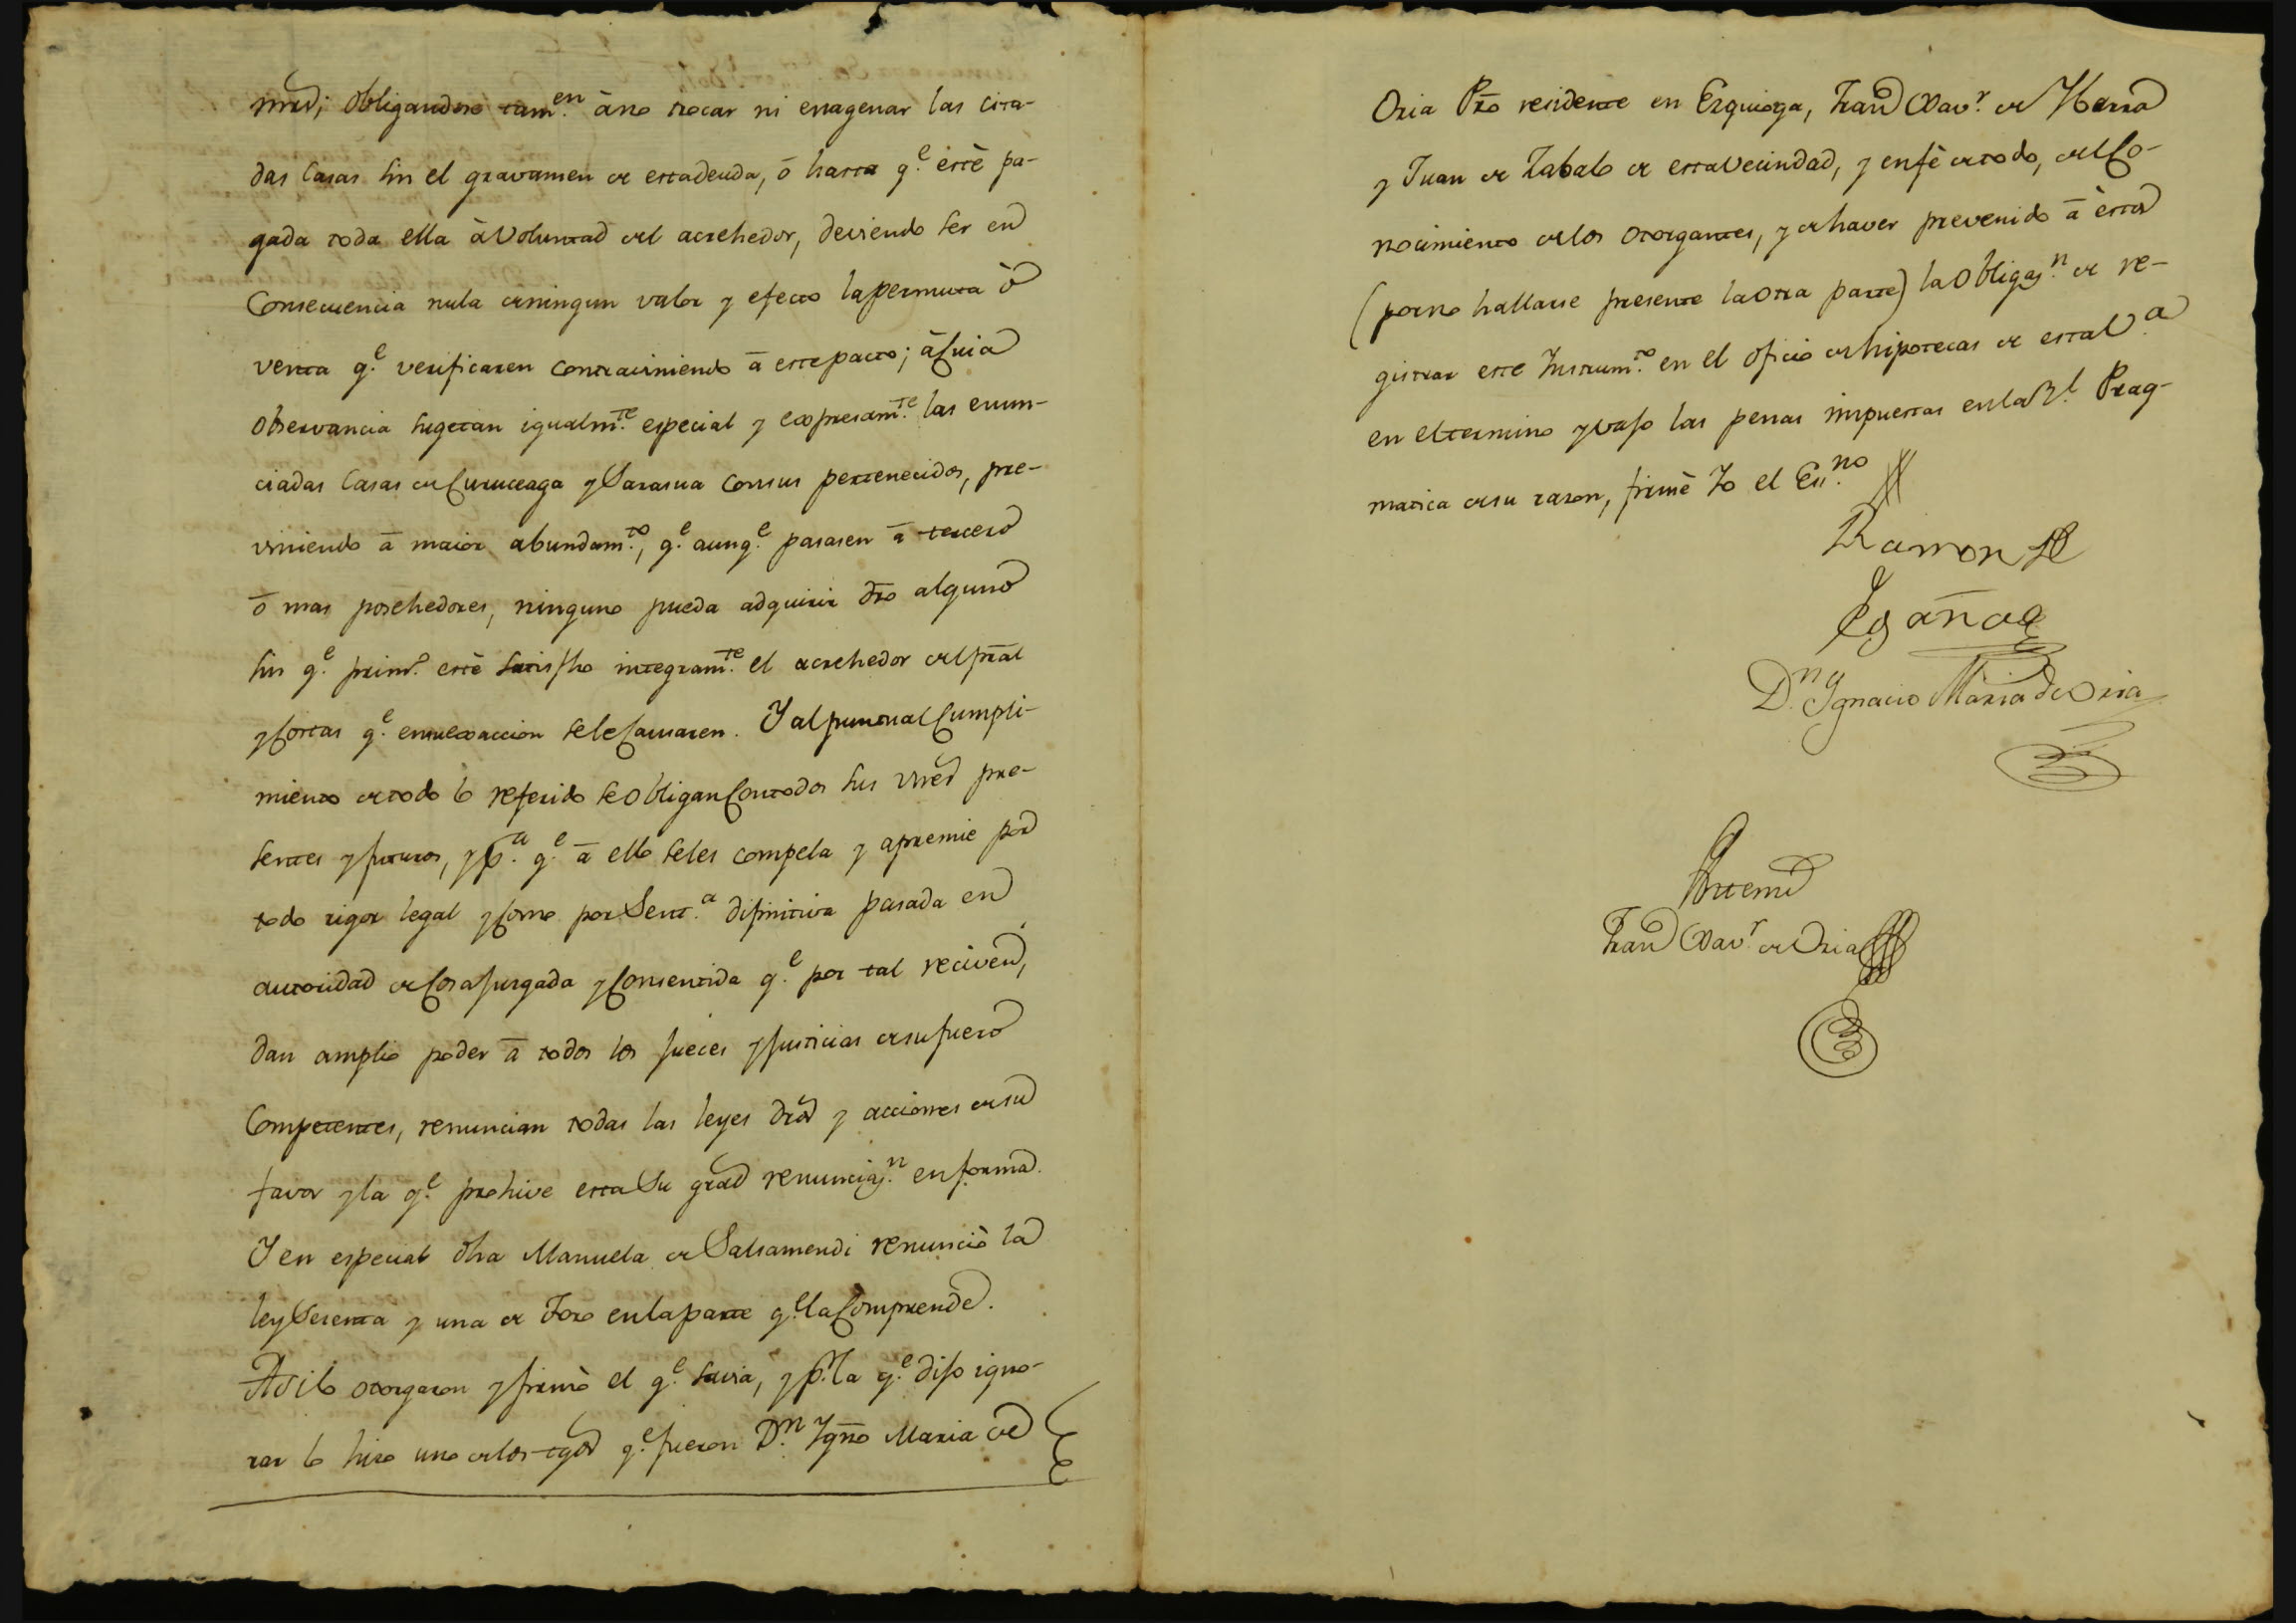 mrd; obligandose tam.en à no trocar ni enagenar las cita-
das Casas sin el gravamen de esta deuda, ó hasta q.e esté pa-
gada toda ella à voluntad del acrehedor, deviendo ser en
Consecuencia nula de ningun valor y efecto la permuta ò
venta q.e verificaren contraviniendo ā este pacto; à Cuia
observancia sugetan igualm.te especial y expresam.te las enun-
ciadas Casas de Curuceaga y Sarasua con sus pertenecidos, pre-
viniendo ā maior abundam.to, q.e aunq.e pasasen ā tercero
ō mas posehedores, ninguno pueda adquirir dro alguno
sin q.e prim.o esté satisfho integram.te el acrehedor del pral
y Costas q.e en su exaccion se le Causaren. Y al puntual Cumpli-
miento de todo lo referido se obligan Con todos sus vnes pre-
sentes y futuros, y p.a q.e ā ello se les compela y apremie por
todo rigor legal y Como por Sent.a difinitiva pasada en
autoridad de Cosa jusgada y Consentida q.e por tal reciven,
dan amplio poder ā todos los jueces y justicias de su fuero
Competentes, renuncian todas las leyes dros y acciones de su
favor y la q.e prohive esta Su gral renunciaz.n en forma.
Y en especial dha Manuela de Salsamendi renunció la
ley Sesenta y una de Toro en la parte q.e la Comprende.
Asi lo otorgaron y firmò el q.e savia, y p.r la q.e dijo igno-
rar lo hizo uno de los tgos q.e fueron D.n Ygño Maria de
Oria Pro recidente en Ezquioga, Fran Xav.r de Ybarra
y Juan de Zabalo de esta Vecindad, y en fè de todo, del Co-
nocimiento de los otorgantes, y de haver prevenido ā estos
(por no hallarse presente la otra parte) la Obligaz.n de re-
gistrar este Instrum.to en el oficio de hipotecas de esta V.a
en el termino y vajo las penas impuestas en la R.l Prag-
matica de su razon, firmè Yo el Ess.no
Ramon de
Egañaa
D.n Ygnacio Maria de Oria
Antemi
Fran Xav.r de Oria